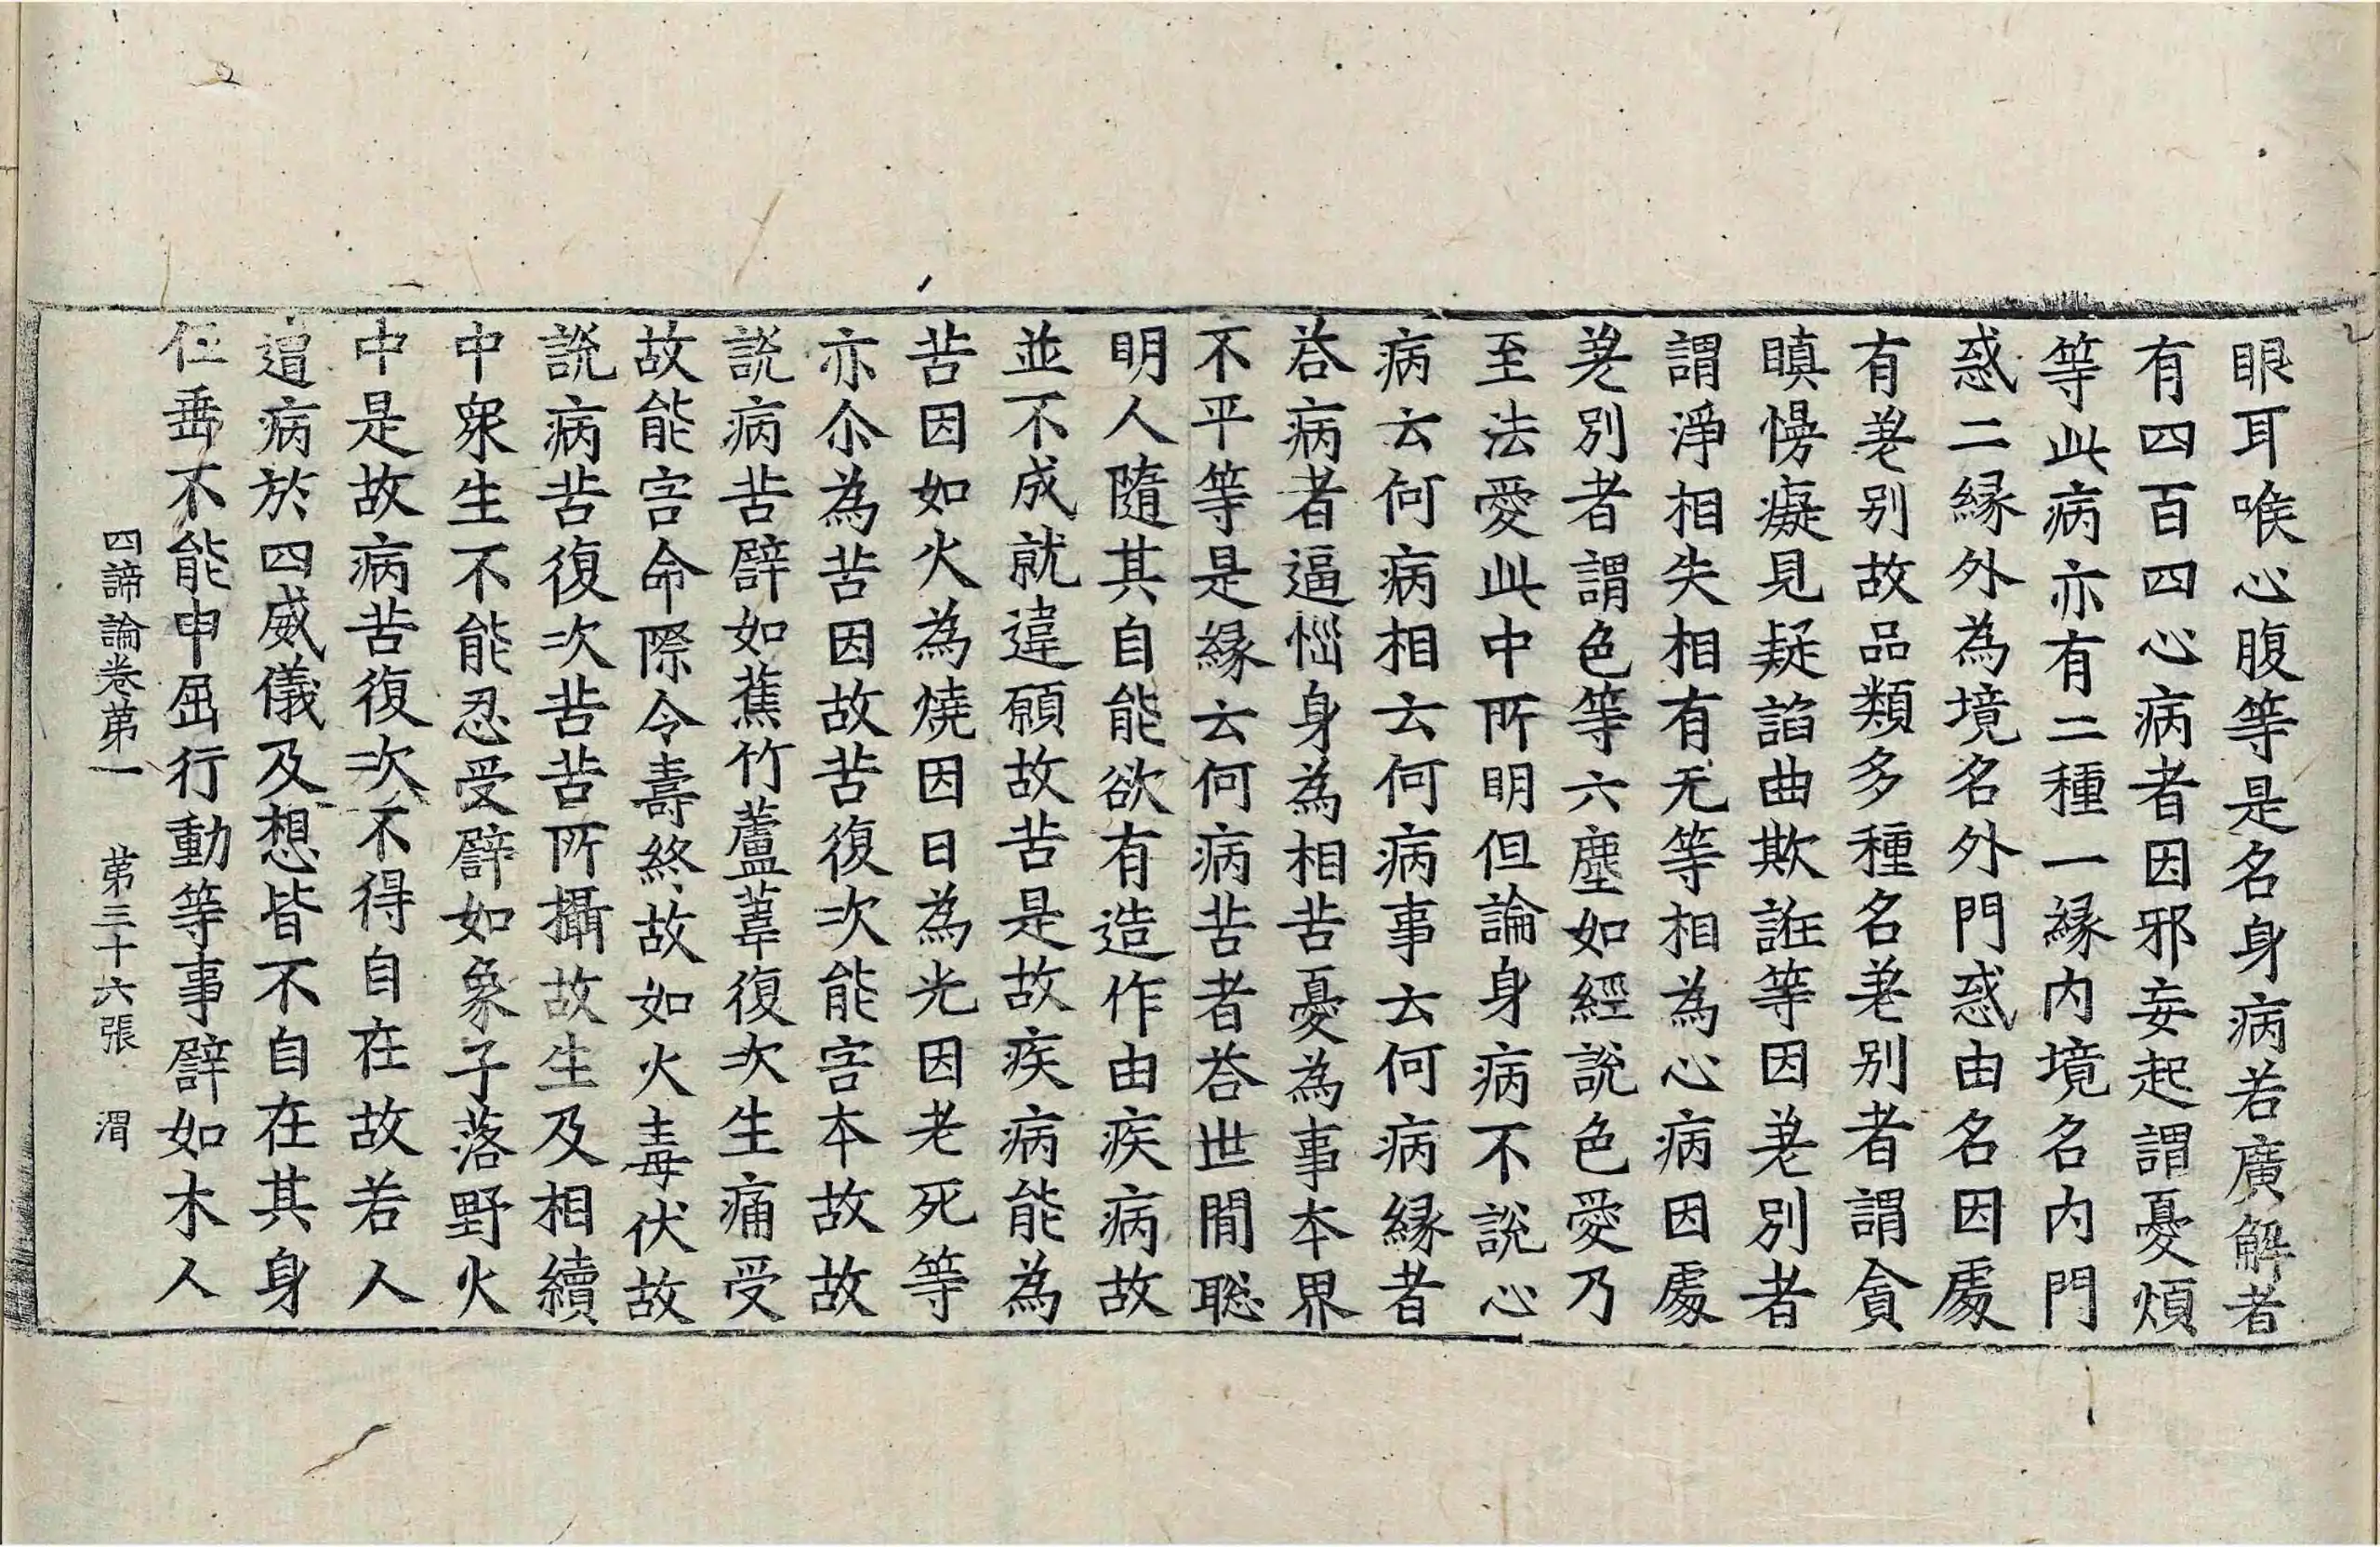 眼耳喉心腹等是名身病若廣解者
有四百四心病者因邪妄起謂憂煩
等此病亦有二種一緣内境名内門
惑二緣外為境名外門惑由名因處
有差别故品類多種名差别者謂貪
瞋慢癡見疑諂曲欺誑等因差别者
謂淨相失相有无等相為心病因處
差别者謂色等六塵如經說色愛乃
至法愛此中所明但論身病不說心
病云何病相云何病事云何病緣者
荅病者逼惱身為相苦憂為事本界
不平等是緣云何病苦者荅世閒聡
明人隨其自能欲有造作由疾病故
並不成就違願故苦是故疾病能為
苦因如火為燒因日為光因老死等
亦尒為苦因故苦復次能害本故故
說病苦譬如蕉竹蘆葦復次生痛受
故能害命際令壽終故如火毒伏故
說病苦復次苦苦所攝故生及相續
中衆生不能忍受譬如象子落野火
中是故病苦復次不得自在故若人
遭病於四威儀及想皆不自在其身
仾垂不能申屈行動等事譬如木人
四諦論卷苐一　苐三十六張　渭